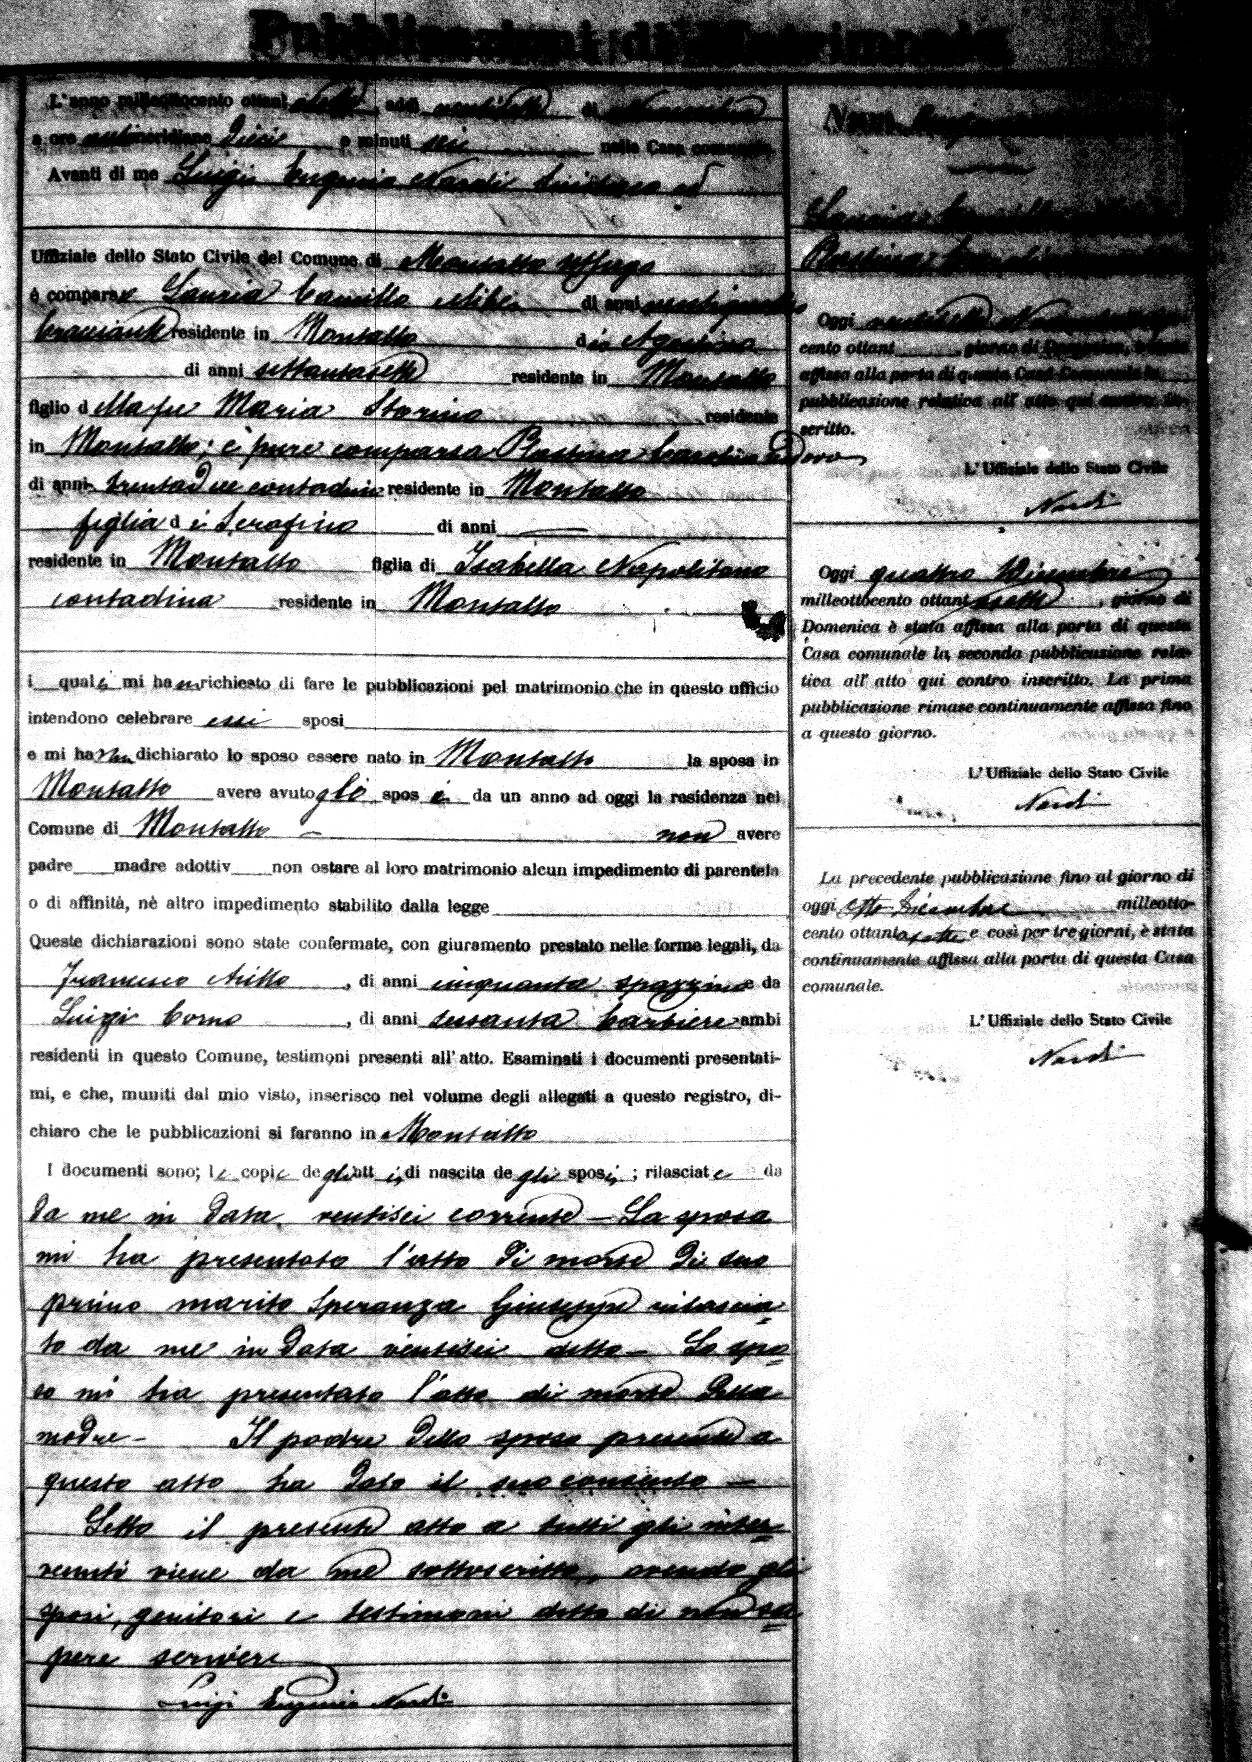 Pubblicazioni di Matrimonio
L'anno milleottocento ottantasette, addì ventisette di novembre
a ore antimeridiane dieci e minuti sei nella Casa comunale
Avanti di me Luigi Eugenio Nardi Sindaco ed
Uffiziale dello Stato Civile del Comune di Montalto Uffugo
è comparso Lauria Camillo celibe di anni
bracciante residente in Montalto di Agostino
di anni settantasette residente in Montalto
figlio della fu Maria Storino residente
in Montalto; è pure comparsa vedova
di anni trentadue contadina residente in Montalto
figlia di Serafino di anni
residente in Montalto figlia di Isabella Napolitano
contadina residente in Montalto
i quali mi han richiesto di fare le pubblicazioni pel matrimonio che in questo ufficio
intendono celebrare essi sposi
e mi hanno dichiarato lo sposo essere nato in Montalto la sposa in
Montalto avere avuto gli sposi da un anno ad oggi la residenza nel
Comune di Montalto non avere
padre madre adottiv non ostare al loro matrimonio alcun impedimento di parentela
o di affinità, nè altro impedimento stabilito dalla legge
Queste dichiarazioni sono state confermate, con giuramento prestato nelle forme legali, da
Francesco Aiello, di anni cinquanta spazzino e da
Luigi Corno, di anni sessanta barbiere ambi
residenti in questo Comune, testimoni presenti all'atto. Esaminati i documenti presentati-
mi, e che, muniti dal mio visto, inserisco nel volume degli allegati a questo registro, di-
chiaro che le pubblicazioni si faranno in Montalto
I documenti sono; le copie degli atti di nascita degli sposi; rilasciate da
da me in data ventisei corrente – La sposa
mi ha presentato l'atto di morte di suo
primo marito Speranza Giuseppe rilascia-
to da me in data ventisei detto – Lo spo-
so mi ha presentato l'atto di morte della
madre – Il padre dello sposo presente a
questo atto ha dato il suo consenso –
Letto il presente atto a tutti gli inter-
venuti viene da me sottoscritto, avendo gli
sposi, genitori e testimoni detto di non sa-
pere scrivere
Luigi Eugenio Nardi
Num.
Lauria Camillo
Oggi ventisette Novembre
cento ottant giorno di Domenica, è stata
affissa alla porta di questa Casa Comunale la
pubblicazione relativa all'atto qui contro in-
scritto.
L'Uffiziale dello Stato Civile
Nardi
Oggi quattro Dicembre
milleottocento ottantasette, giorno di
Domenica è stata affissa alla porta di questa
Casa comunale la seconda pubblicazione rela-
tiva all'atto qui contro inscritto. La prima
pubblicazione rimase continuamente affissa fino
a questo giorno.
L'Uffiziale dello Stato Civile
Nardi
La precedente pubblicazione fino al giorno di
oggi otto Dicembre milleotto-
cento ottantasette e così per tre giorni, è stata
continuamente affissa alla porta di questa Casa
comunale.
L'Uffiziale dello Stato Civile
Nardi